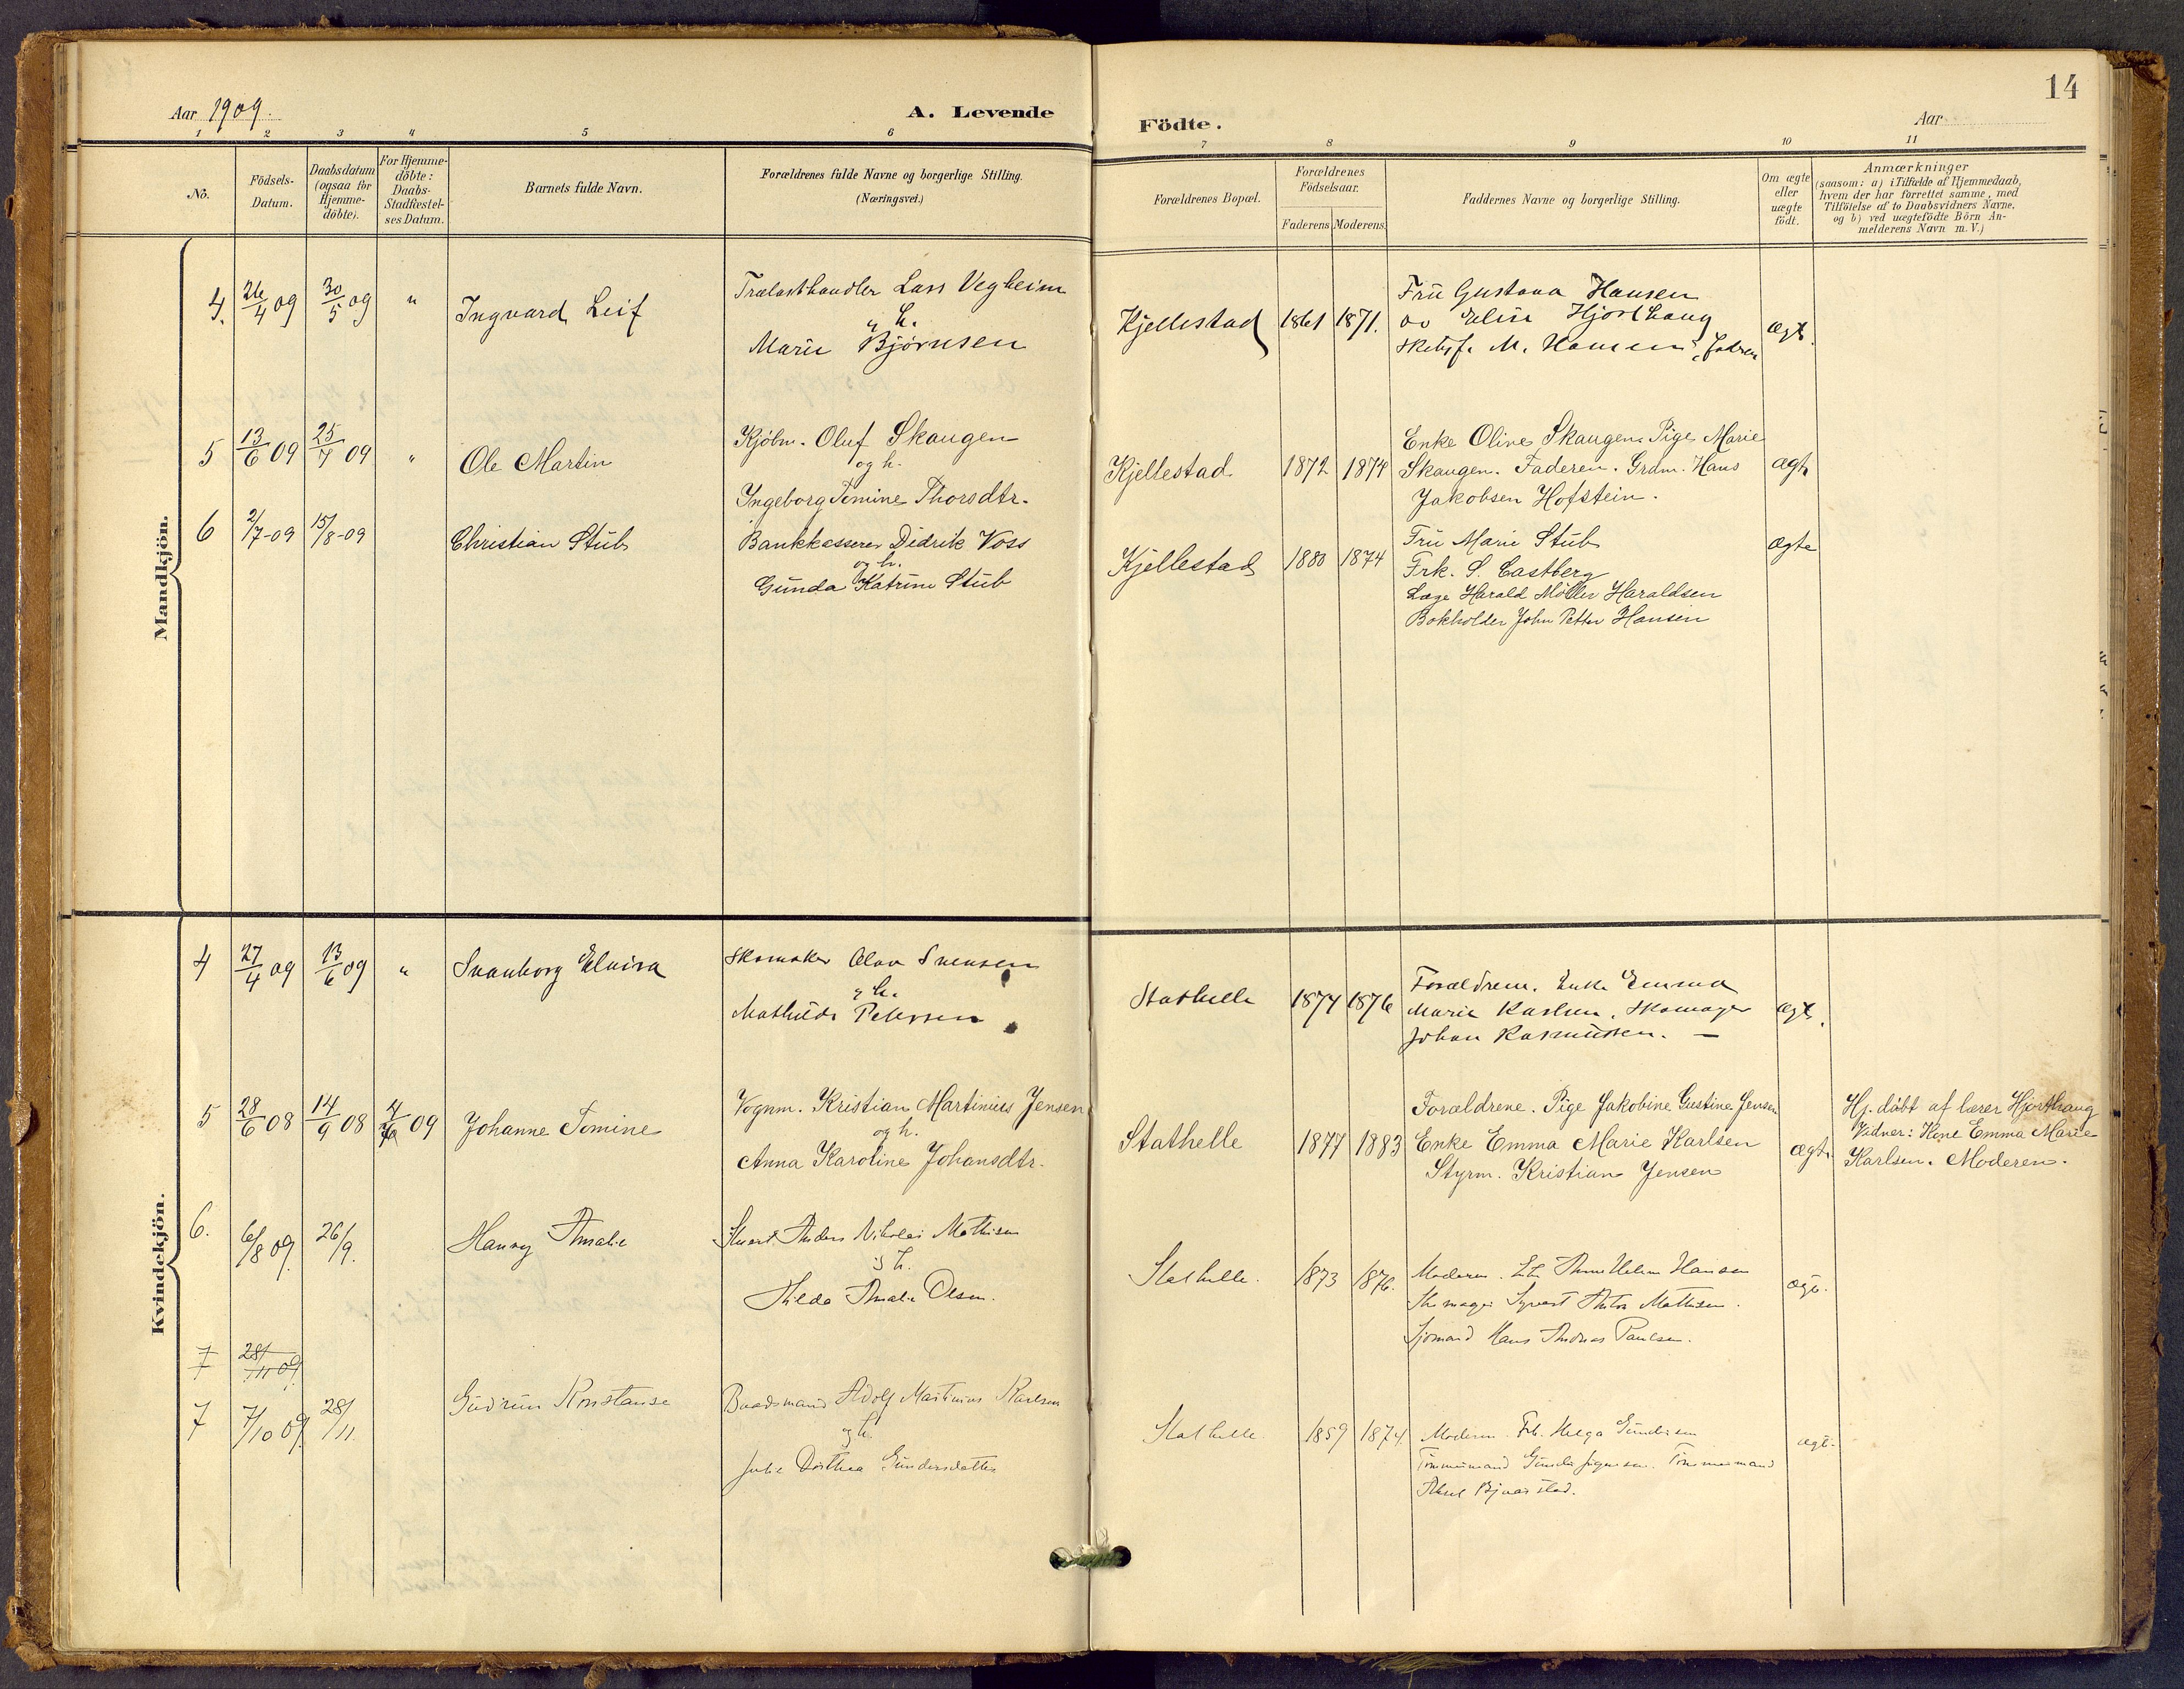 Aar 1909.
A. Levende
Födte.
Aar
14
1 2 3 4 5 6 7 8 9 10 11
No.
Födsels-
Datum.
Daabsdatum
(ogsaa for
Hjemme-
döbte).
For Hjemme-
döbte:
Daabs-
Stadfæstel-
ses Datum.
Barnets fulde Navn.
Forældrenes fulde Navne og borgerlige Stilling.
(Næringsvei.)
Forældrenes Bopæl.
Forældrenes
Födselsaar.
Faderens Moderens.
Faddernes Navne og borgerlige Stilling.
Om ægte
eller
uægte
födt.
Anmærkninger
(saasom: a) i Tilfælde af Hjemmedaab,
hvem der har forrettet samme, med
Tilföielse af to Daabsvidners Navne,
og b) ved uægtefödte Börn An-
melderens Navn m. V.)
Mandkjön.
4. 26/4 09 30/5 09 " Ingvard Leif
Trælasthandler Lars Vegheim
h.
Marie Bjørnsen
Kjellestad 1861 1871.
Fru Gustava Hansen
Elise Hjorthaug
M. Hansen, Faderen
ægt.
5 13/6 09 25/7 09 " Ole Martin
Kjöbm. Oluf Skaugen
og h.
Ingeborg Tomine Thorsdtr.
Kjellestad 1872 1874
Enke Oline Skaugen. Pige Marie
Skaugen. Faderen. Grdm. Hans
Jakobsen Hofstein.
ægt.
6 2/7-09 15/8-09 Christian Stub
Bankkasserer Didrik Voss
og h.
Gunda Katrine Stub
Kjellestad 1880 1874
Fru Marie Stub
Frk. S. Castberg
Læge Harald Möller Haraldsen
Bokholder John Petter Hansen
ægte
Kvindekjön.
4 27/4 09 13/6 09 " Svanborg Elvira
Skomaker Olav Svensen
h.
Mathilde Petersen
Stathelle 1874 1876
Forældrene. Enke Emma
Marie Karlsen, Skomager
Johan Rasmussen. —
ægt.
5 28/6 08 14/9 08 09 Johanne Tomine
Vognm. Kristian Martinius Jensen
og h.
Anna Karoline Johansdtr.
Stathelle 1877 1883
Forældrene. Pige Jakobine Gustine Jensen
Enke Emma Marie Karlsen
Styrm. Kristian Jensen
ægt.
Hj. döbt af lærer Hjorthaug
Vidner: Kone Emma Marie
Karlsen. Moderen.
6. 6/8 09. 26/9. Hansy Amalie
Stuert Anders Nikolai Mathisen
h.
Hilda Amalie Olsen.
Stathelle. 1873 1876.
Moderen. Hansen
Skomager Syvert Anton Mathisen.
Sjömand Hans Andreas Paulsen.
ægt.
7 28/11 09.
7 7/10 09. 28/11. Gudrun Konstanse
Baadsmand Adolf Martinius Karlsen
og h.
Julie Dorthea Gundersdatter
Stathelle. 1859 1874.
Moderen. Frk. Helga Gundersen
Tömmermand Gunder Tömmermand
Aksel Bjvarstad.
ægt.